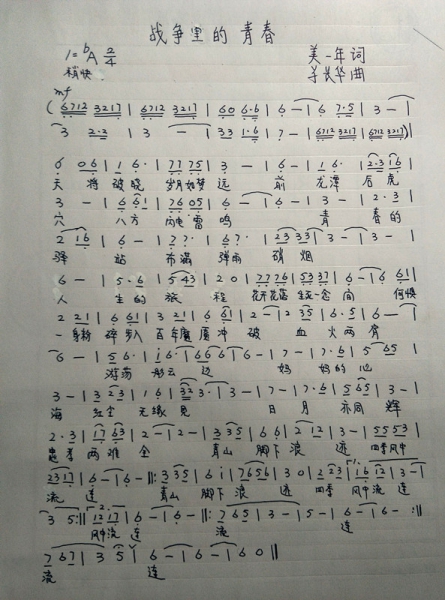 战争里的青春
1=ᵇA 2/4 美一年词
稍快 羊长华曲
mf
(6712 3217 | 6712 3217 | 60 6·6 | 6 — | 6 7·5 | 3 — |
3 2·2 | 3 — | 33 1·6 | 7 — | 6712 3217 | 6712 3217 )|
6 06 | 16· | 77 75 | 3 — | 6 — | 16· | 2·316 |
天 将破晓 岁月如梦远 前 龙潭 后虎
3 — | 6 61 | 76 05 | 6 — | 6 — | 3 — | 2·3 |
穴 八方 雷鸣 青春的
2 16 | 6 — | 7 7· | 6 7· | 23 33 | 3 — | 3 — |
驿站 布满 弹雨 硝烟
6 — | 5·6 | 543 | 20 | 7776 | 5337 | 6 — | 6 61 |
人生的旅程 花开花落 生死一念间 何惧
2 21 | 6 61 | 3 21 | 6 61 | 2 — | 2 35 | 16·5 | 16 — |
一身 碎 百年 冲破 血火两肩
6 — | 56· | i6· | 66 6 | 6 — | 7 — | 7·6 | 5 65 |
游荡 彩云边 妈妈的心
3 — | 3 23 | 16 | 32 3· | 3 — | 7 — | 7·6 | 5 65 | 3 — |
海 红尘无缘见 日月亦同辉
2·3 | 17 63 | 2 — | 2 — | 3 35 | 66 | 2 2 | 3 — | 55 53 |
忠孝两难全 青山脚下浪迹 四季风中
2317 | 6 — | 6 — :‖: 3 35 | 6 i | 7656 | 30 | 2 23 | 16 12 | 3 — |
流连 青山脚下浪迹 四季风中流连
3 5 :‖ 1217 | 6 — | 6 — :‖: 765 | 3 — | 5 — | 6 — | 6 — :‖
风中流连 流连
7 67 | 3 5 | 6 — | 6 — | 6 — | 60 ‖
流连